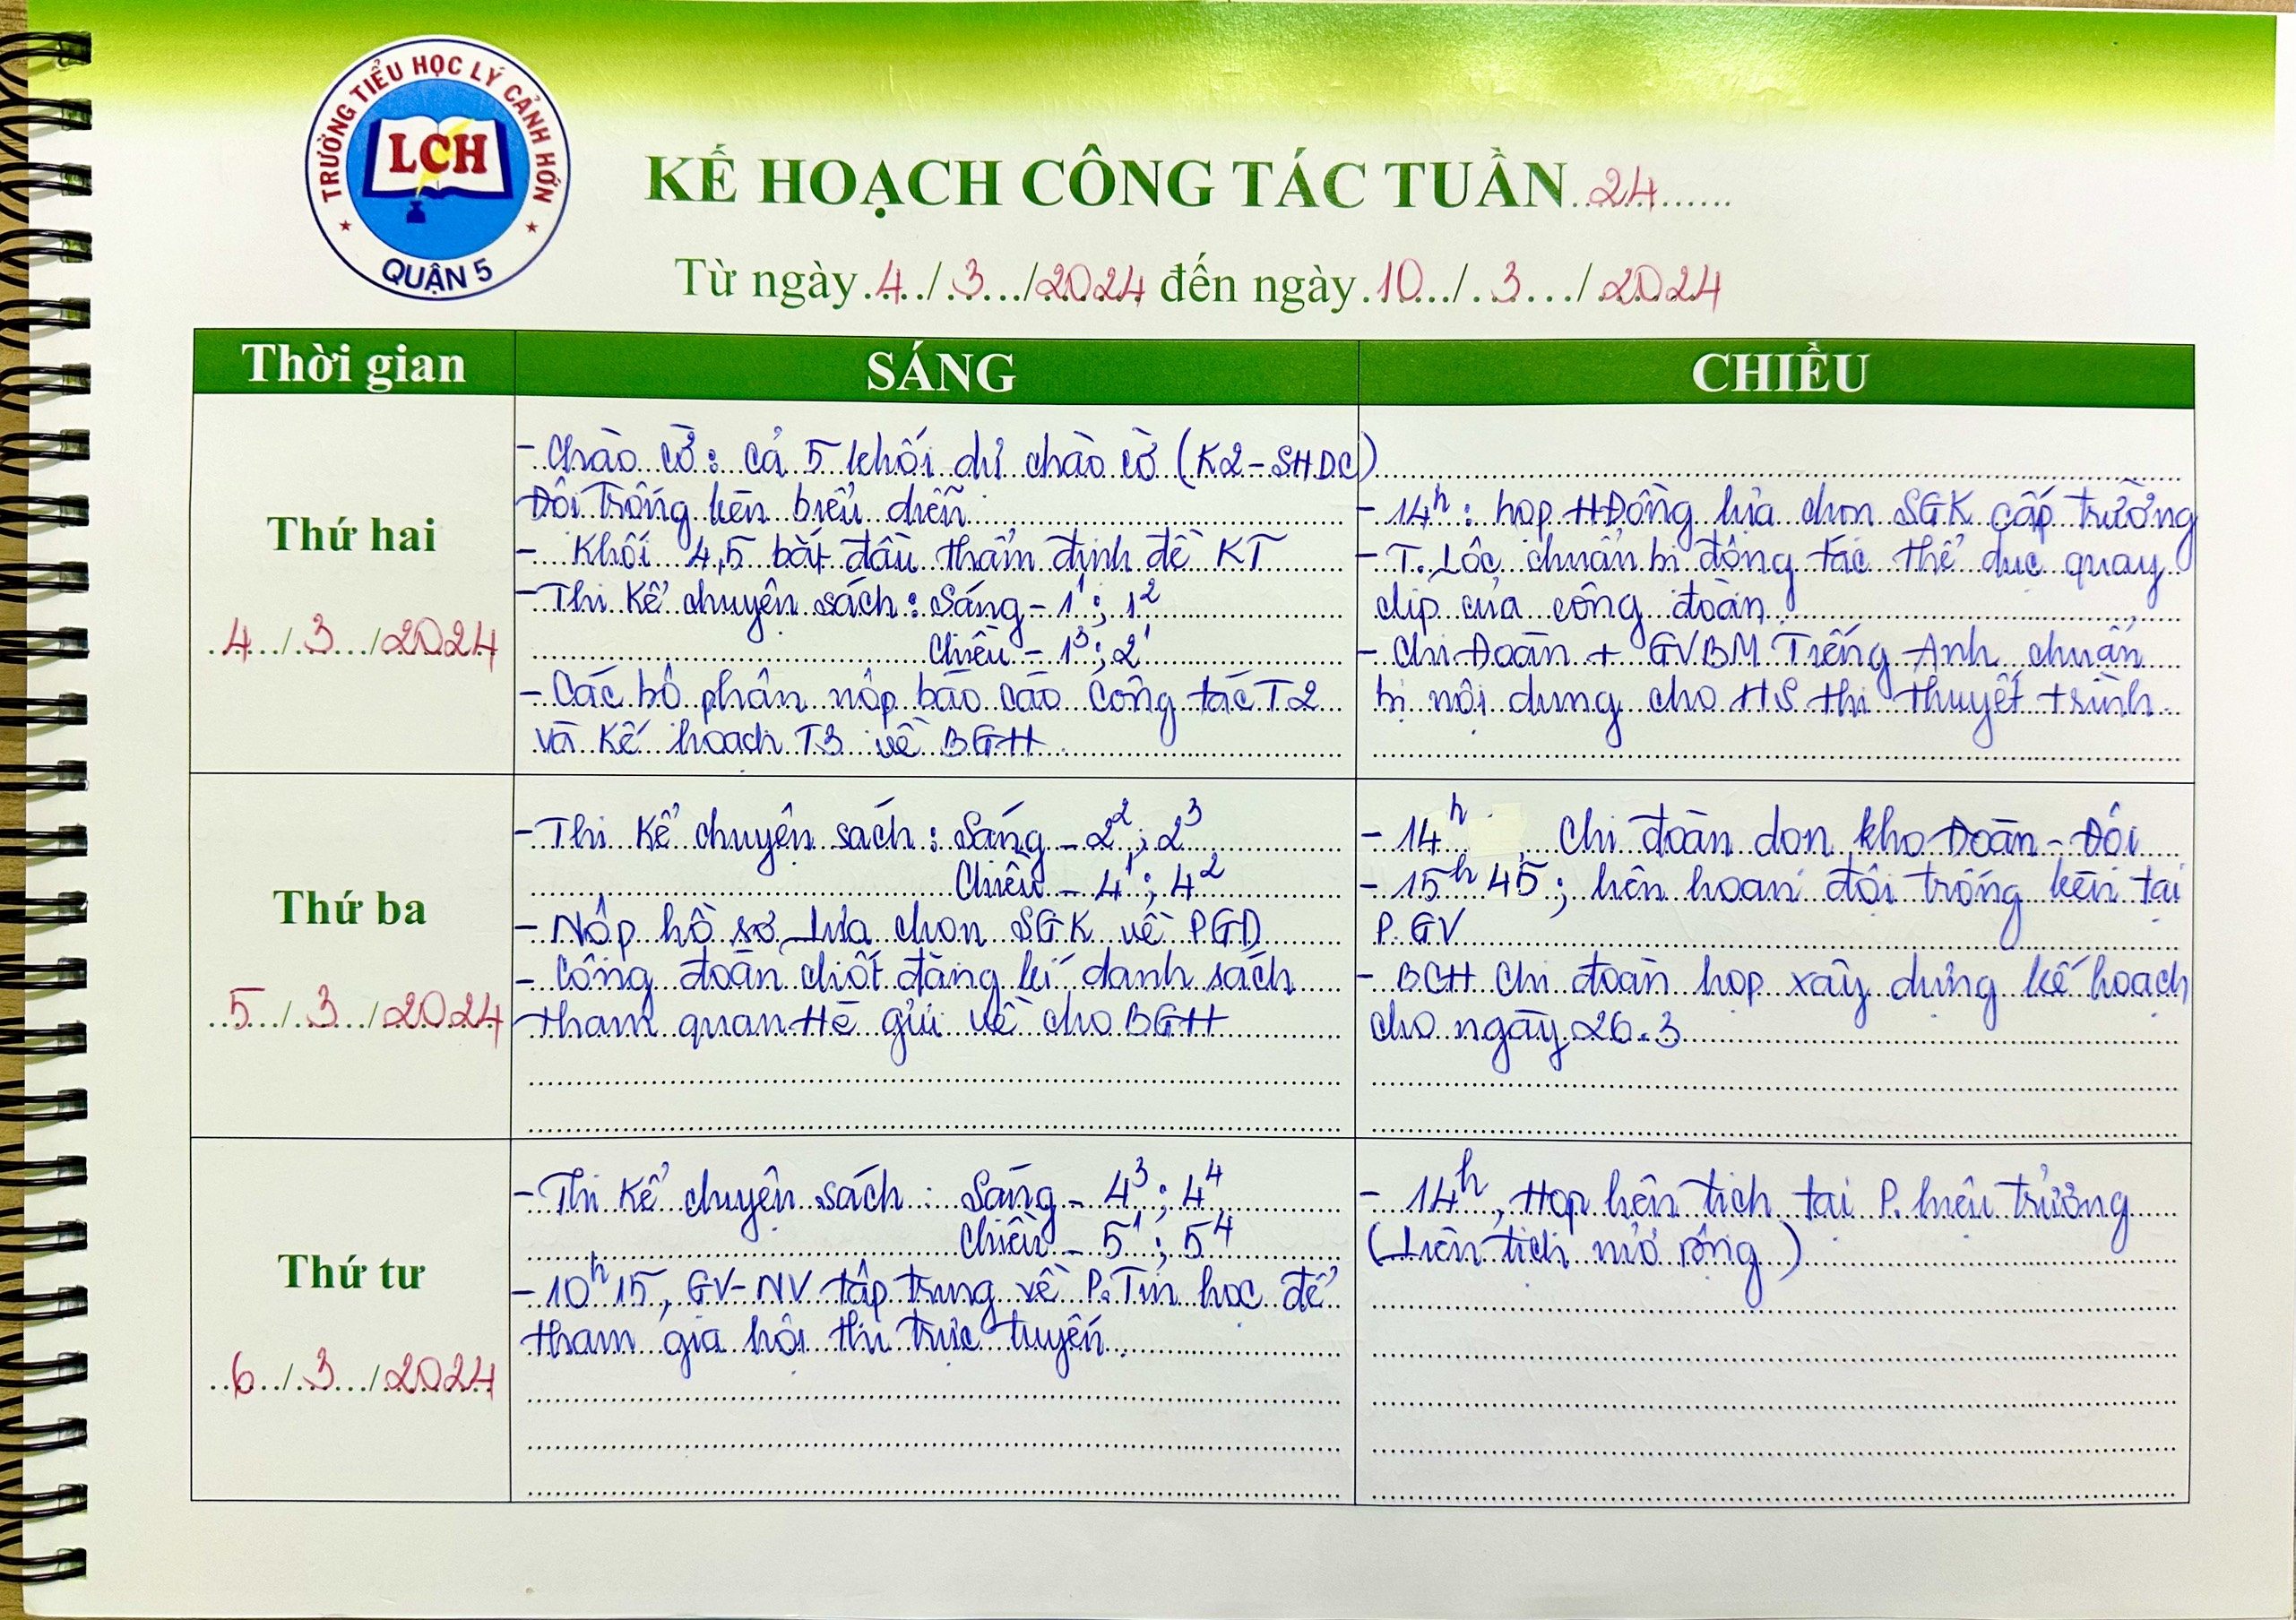 TRƯỜNG TIỂU HỌC LÝ CẢNH HỚN
LCH
QUẬN 5
KẾ HOẠCH CÔNG TÁC TUẦN 24
Từ ngày 4/3/2024 đến ngày 10/3/2024
Thời gian SÁNG CHIỀU
Thứ hai
4/3/2024
- Chào cờ: cả 5 khối dự chào cờ (K2-SHDC)
Đội Trống kèn biểu diễn
- Khối 4,5 bắt đầu thẩm định đề KT
- Thi Kể chuyện sách: Sáng - 1¹; 1²
Chiều - 1³; 2¹
- Các bộ phận nộp báo cáo công tác T2
và Kế hoạch T3 về BGH
- 14h: họp HĐồng lựa chọn SGK cấp trường
- T. Lộc chuẩn bị động tác thể dục quay
clip của công đoàn
- Chi Đoàn + GVBM Tiếng Anh chuẩn
bị nội dung cho HS thi thuyết trình
Thứ ba
5/3/2024
- Thi Kể chuyện sách: Sáng - 2²; 2³
Chiều - 4¹; 4²
- Nộp hồ sơ Lựa chọn SGK về PGD
- Công đoàn chốt đăng kí danh sách
tham quan Hè gửi về cho BGH
- 14h, Chi đoàn dọn kho Đoàn - Đội
- 15h45; liên hoan đội trống kèn tại
P. GV
- BCH Chi đoàn họp xây dựng kế hoạch
cho ngày 26.3
Thứ tư
6/3/2024
- Thi Kể chuyện sách: Sáng - 4³; 4⁴
Chiều - 5¹; 5⁴
- 10h15, GV-NV tập trung về P. Tin học để
tham gia hội thi trực tuyến.
- 14h, Họp liên tịch tại P. hiệu trưởng
(Liên tịch mở rộng)